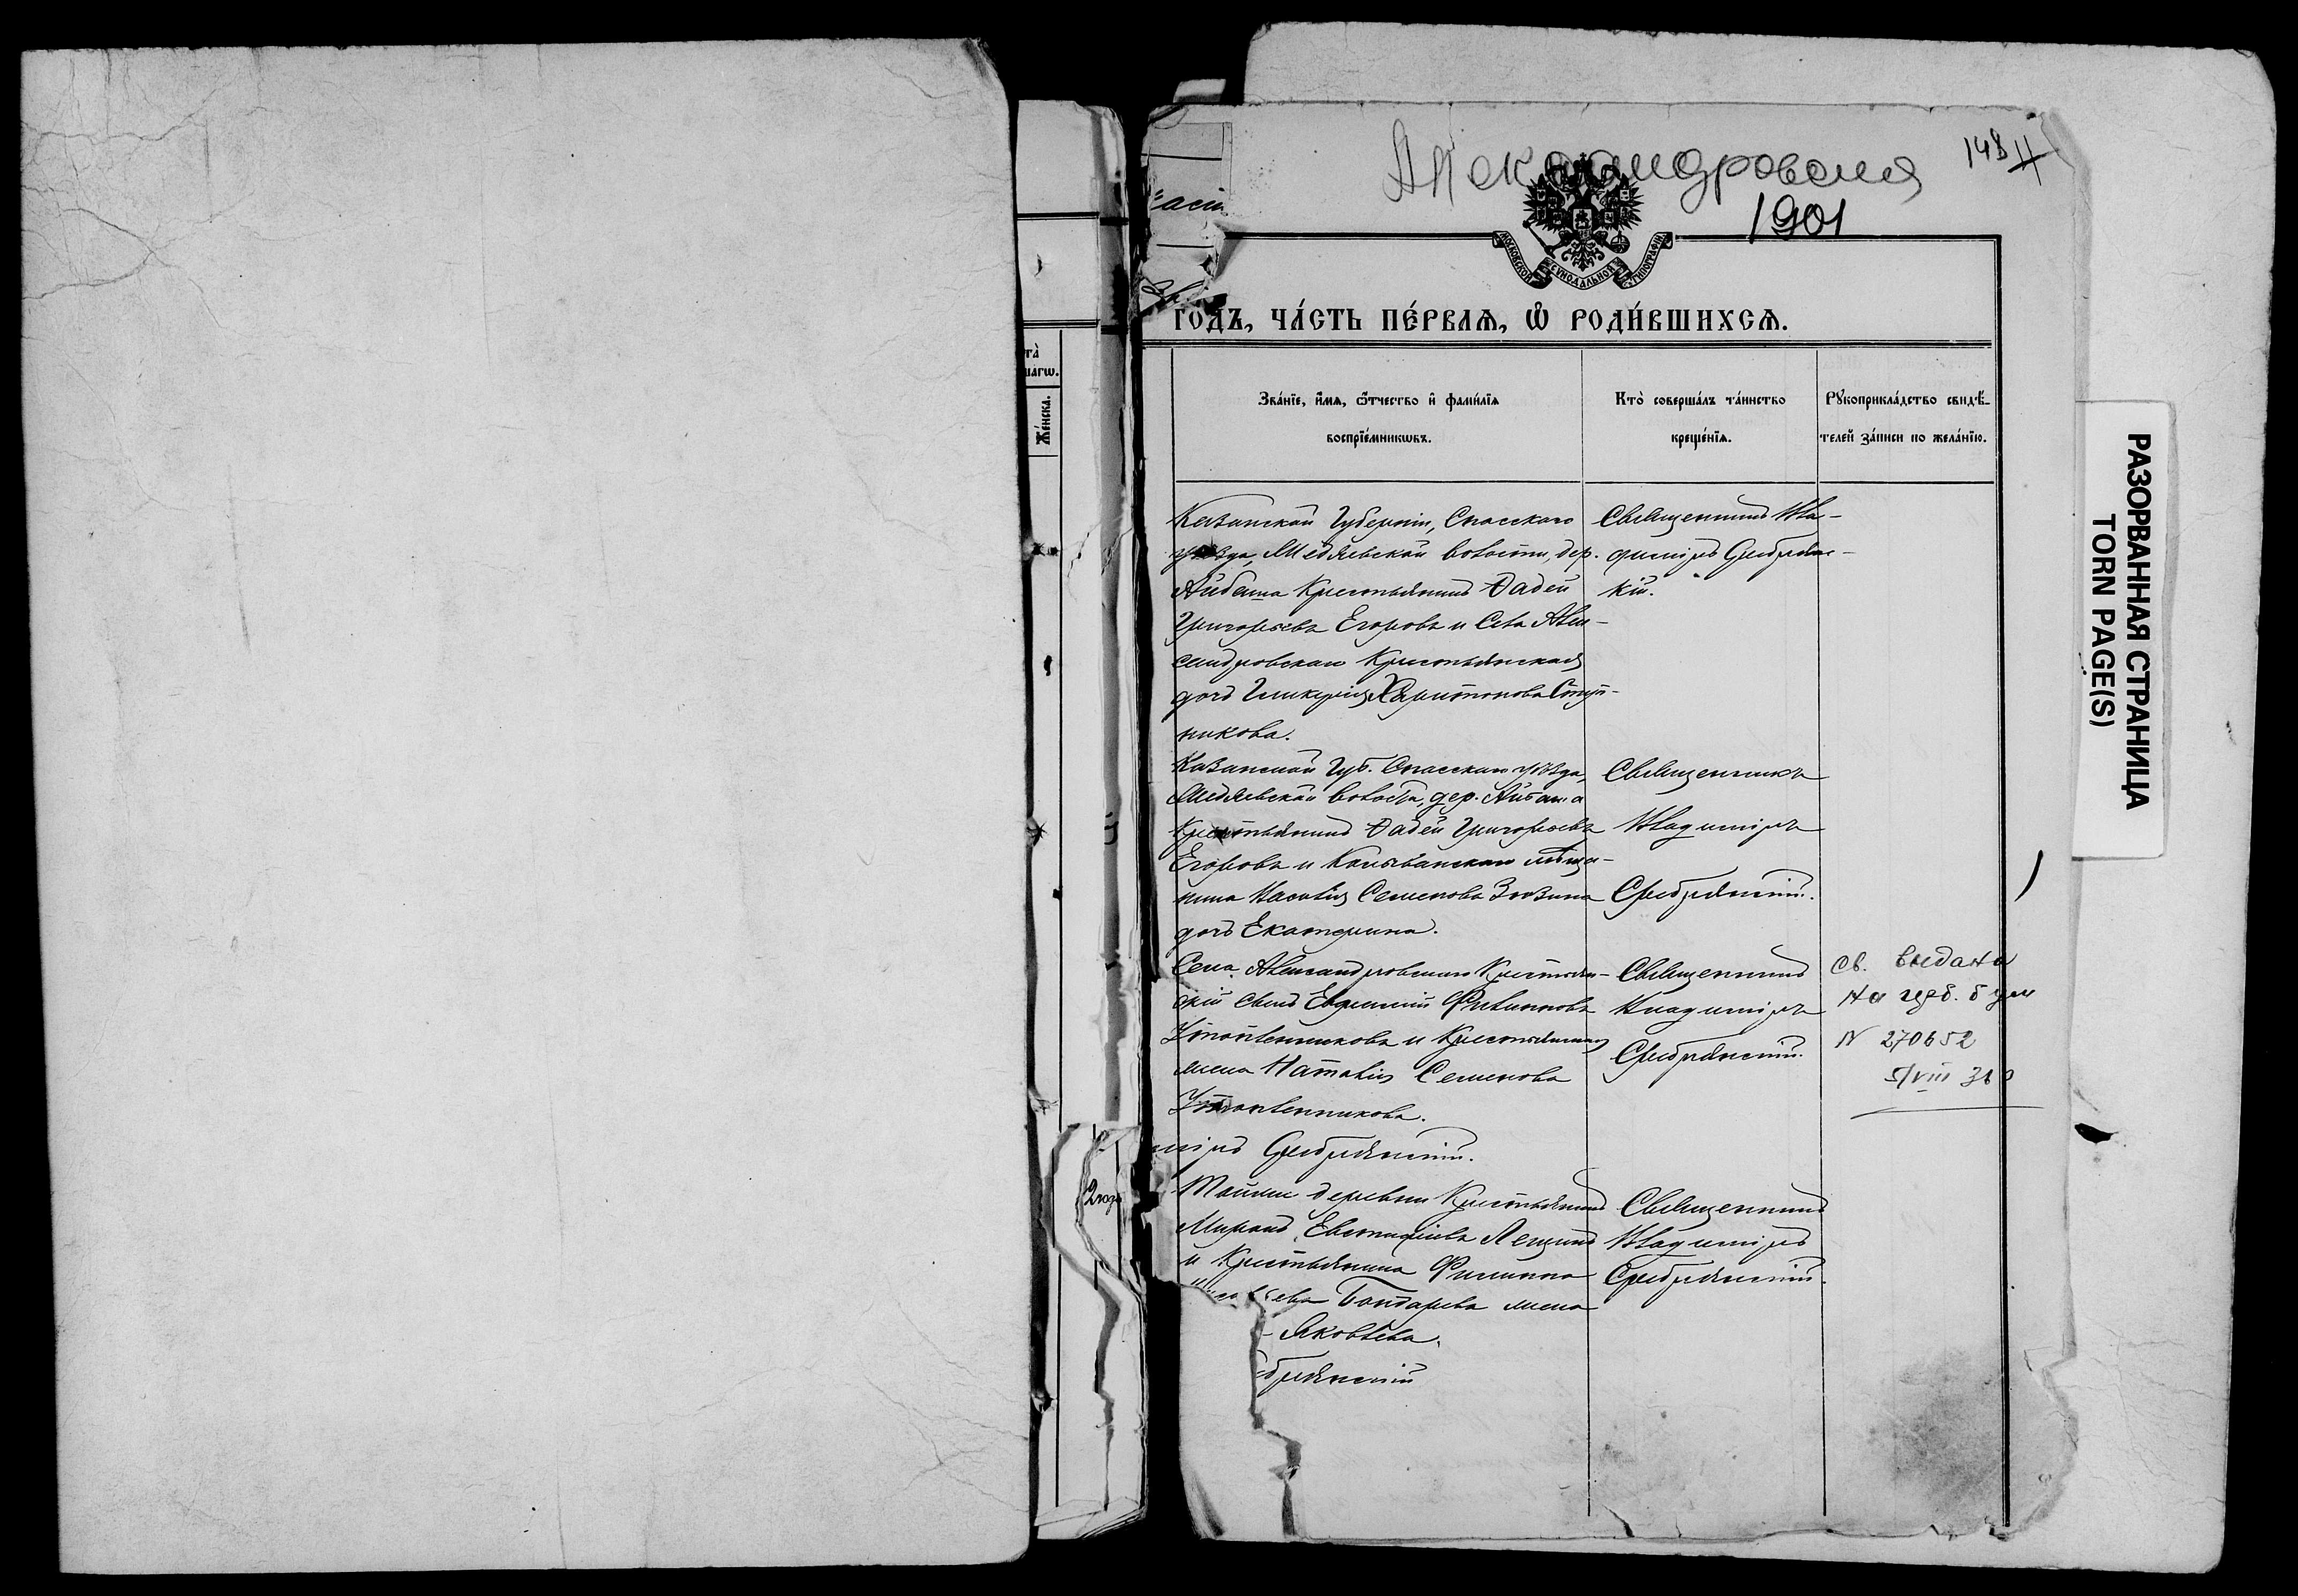 Александровская
148
1901
МОСКОВСКОЙ СѴНОДАЛЬНОЙ ТИПОГРАФІИ
ГОДЪ, ЧА́СТЬ ПЕ́РВАЯ, Ѡ҆ РОДИ́ВШИХСЯ.
та̀
Же́нска.
Зва́нїе, и҆́мя, ѻ҆́тчество и҆ фами́лїя
воспрїе́мникѡвъ.
Кто̀ соверша́лъ та́инство
креще́нїя.
Рꙋкоприкла́дство свидѣ́-
телей за́писи по жела́нїю.
Казанской Губерніи, Спасскаго
уѣзда, Медяевской волости, дер.
Айбаша Крестьянинъ Ѳадей
Григорьевъ Егоровъ и Села Алек-
сандровскаго Крестьянская
дочь Гликерія Харитонова Ступ-
никова.
Священникъ Вла-
диміръ Сребрянс-
кій.
Казанской Губ. Спасскаго уѣзда,
Медяевской волости, дер. Айбаша
Крестьянинъ Ѳадей Григорьевъ
Егоровъ и Колыванскаго мѣща-
нина Семенова
дочь Екатерина.
Священникъ
Владиміръ
Сребрянскій.
Села Александровскаго Крестьян-
скій сынъ Евфимій Филипповъ
и Крестьянина
жена Наталія Семенова
Священникъ
Владиміръ
Сребрянскій.
Св. выдана
на герб. бум
N 270652
5/VIII
міръ Сребрянскій.
2 года
деревни Крестьянинъ
Миронъ Лещинъ
и Крестьянина Филиппа
Бондарева жена
Яковлева.
Священникъ
Владиміръ
Сребрянскій.
брянскій
РАЗОРВАННАЯ СТРАНИЦА
TORN PAGE(S)